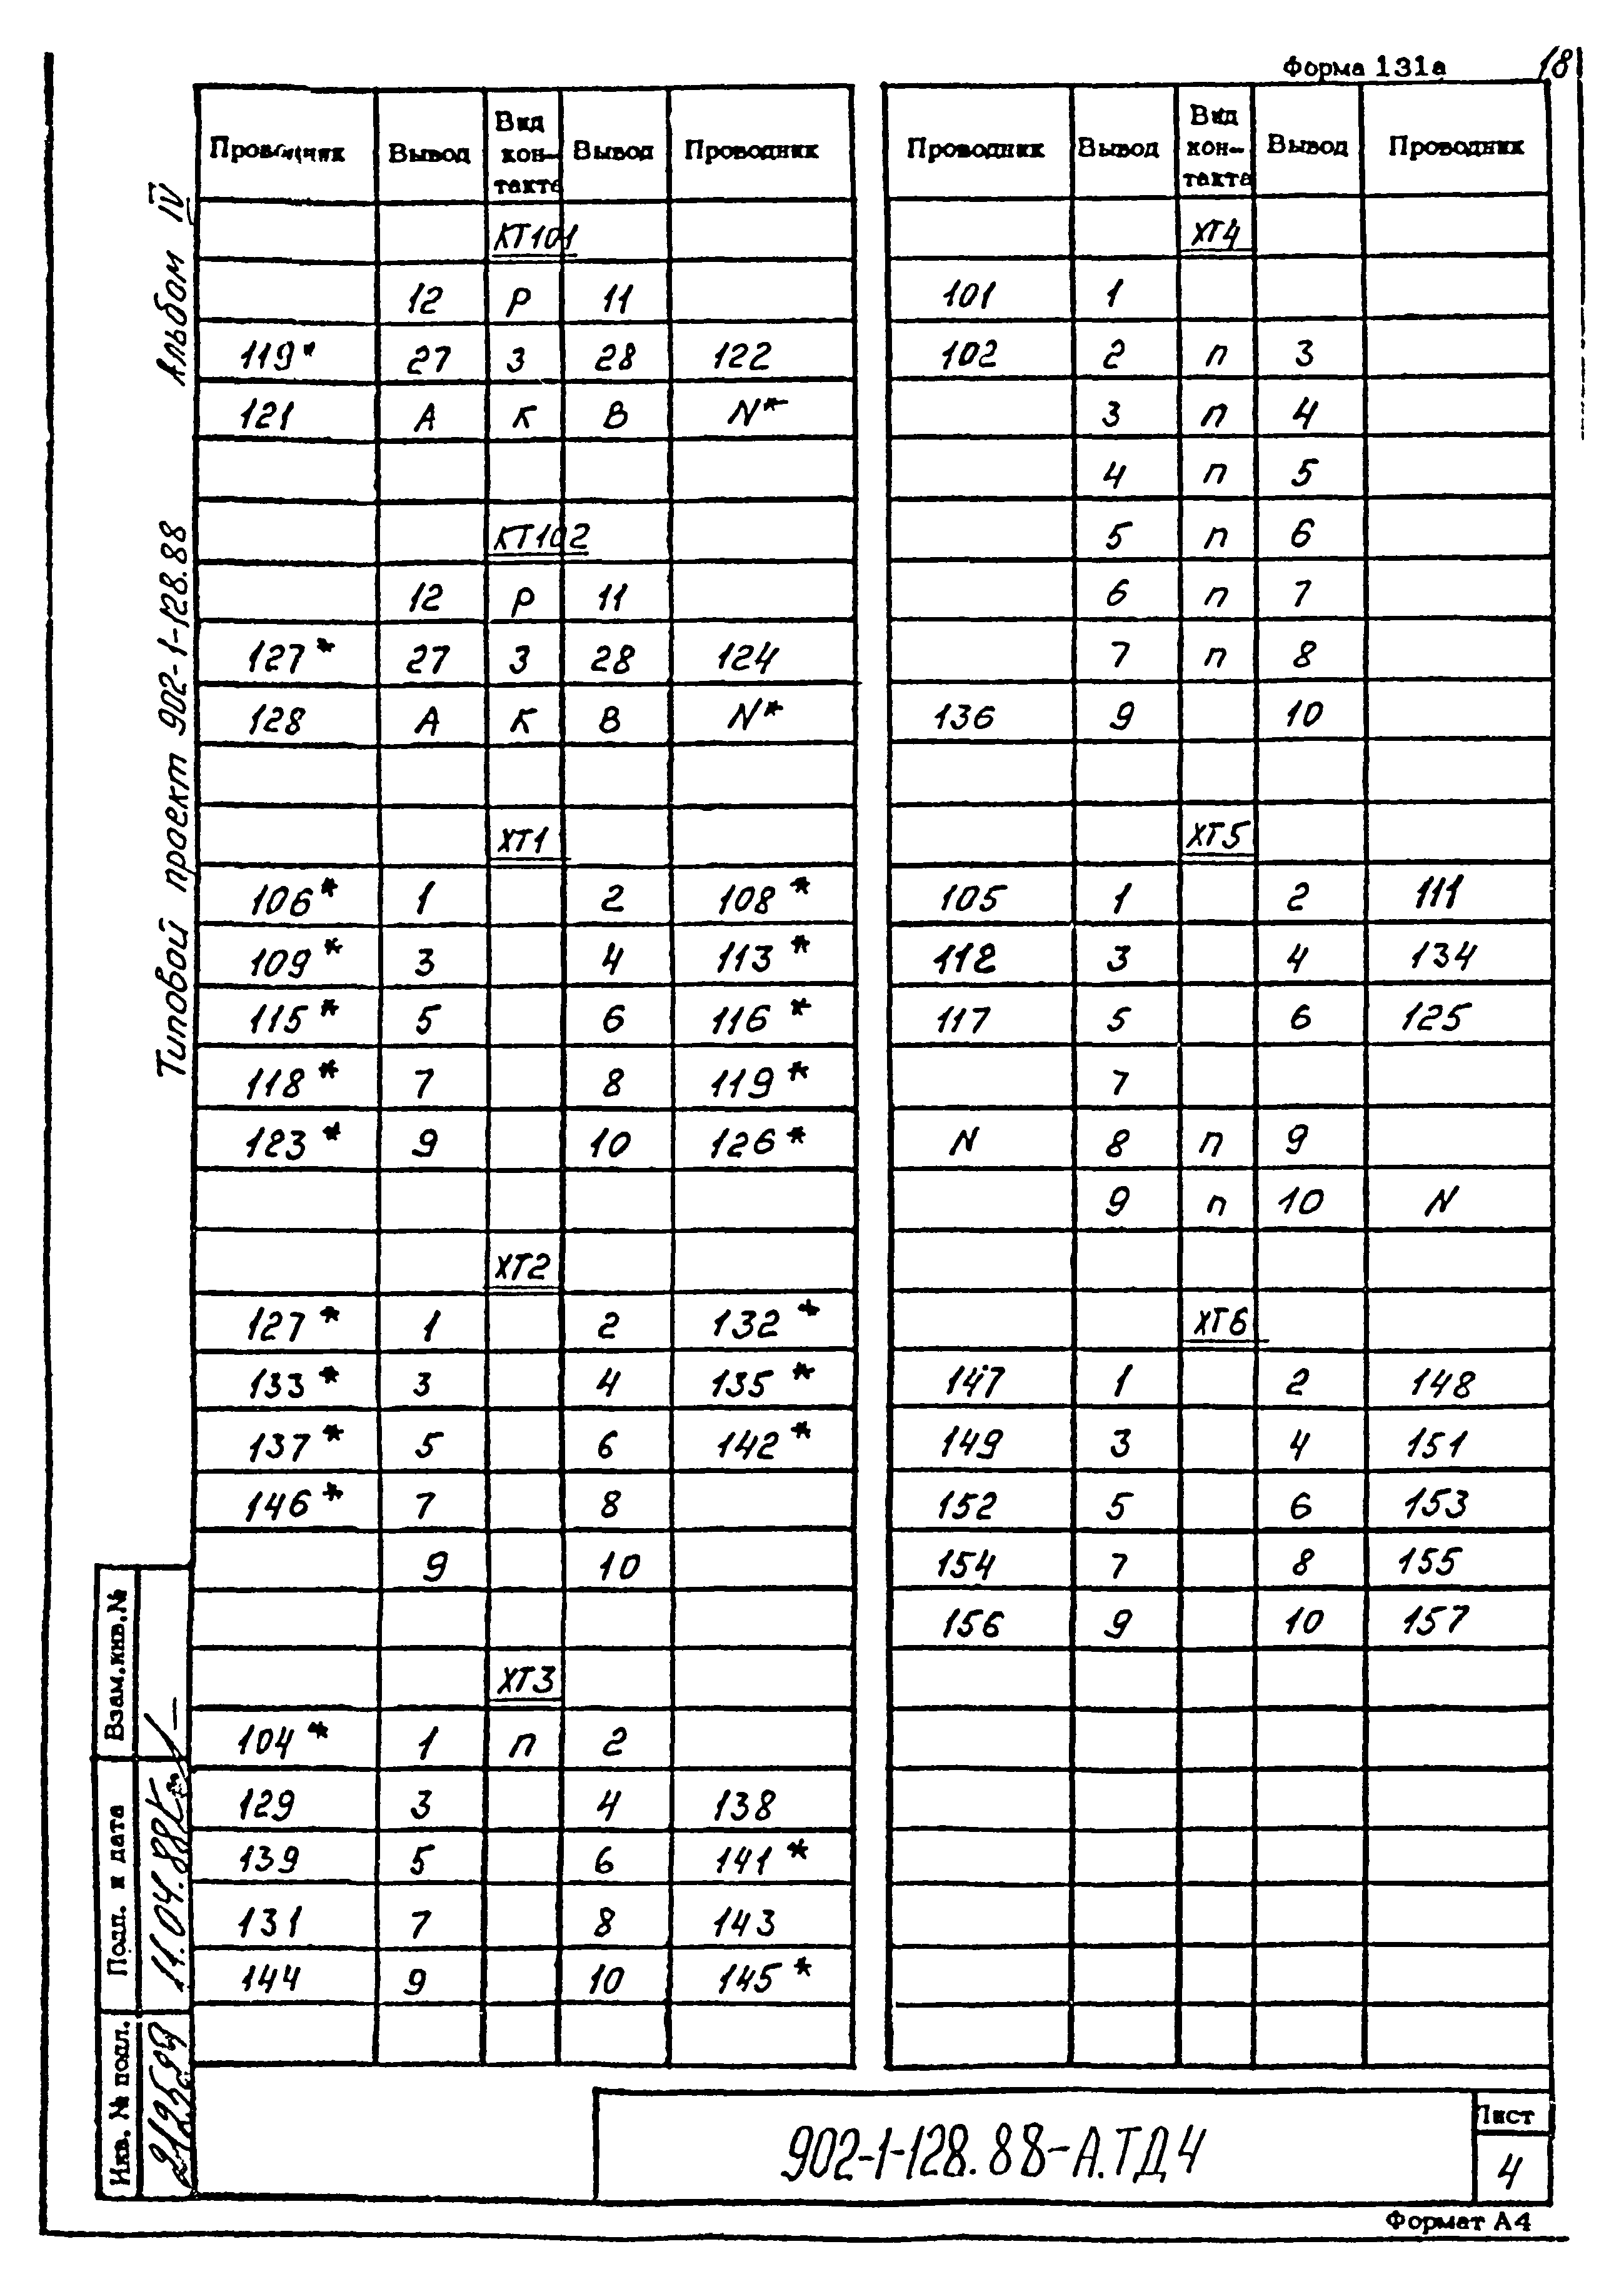 Форма 131а
18
Альбом IV
Типовой проект 902-1-128.88
Проводник Вывод Вид контакта Вывод Проводник
КТ101
12 Р 11
119* 27 З 28 122
121 А К В N*
КТ102
12 Р 11
127* 27 З 28 124
128 А К В N*
ХТ1
106* 1 2 108*
109* 3 4 113*
115* 5 6 116*
118* 7 8 119*
123* 9 10 126*
ХТ2
127* 1 2 132*
133* 3 4 135*
137* 5 6 142*
146* 7 8
9 10
ХТ3
104* 1 п 2
129 3 4 138
139 5 6 141*
131 7 8 143
144 9 10 145*
Проводник Вывод Вид кон-такта Вывод Проводник
ХТ4
101 1
102 2 п 3
3 п 4
4 п 5
5 п 6
6 п 7
7 п 8
136 9 10
ХТ5
105 1 2 111
112 3 4 134
117 5 6 125
7
N 8 п 9
9 п 10 N
ХТ6
147 1 2 148
149 3 4 151
152 5 6 153
154 7 8 155
156 9 10 157
Взам.инв.№
Подп. и дата
11.04.88
Инв. № подл.
902-1-128.88-А.ТД4
Лист
4
Формат А4